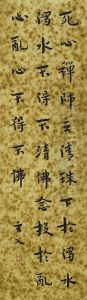 死心禪師云清珠下於濁水
濁水不得不清佛念投於亂
心亂心不得不佛